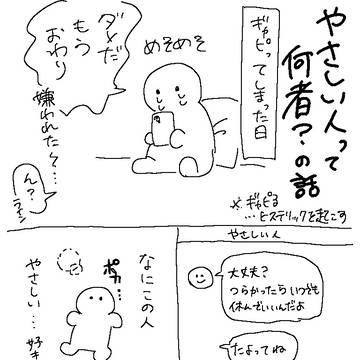 やさしい人って
何者?の話
※ギャピる
…ヒステリックを起こす
ギャピってしまった日
めそめそ
ダメだ
もう
おわり
嫌われた〜…
ん?
ライン
やさしい人
大丈夫?
つらかったらいつでも
休んでいいんだよ
たよってね
なにこの人
ポカ…
やさしい…好き